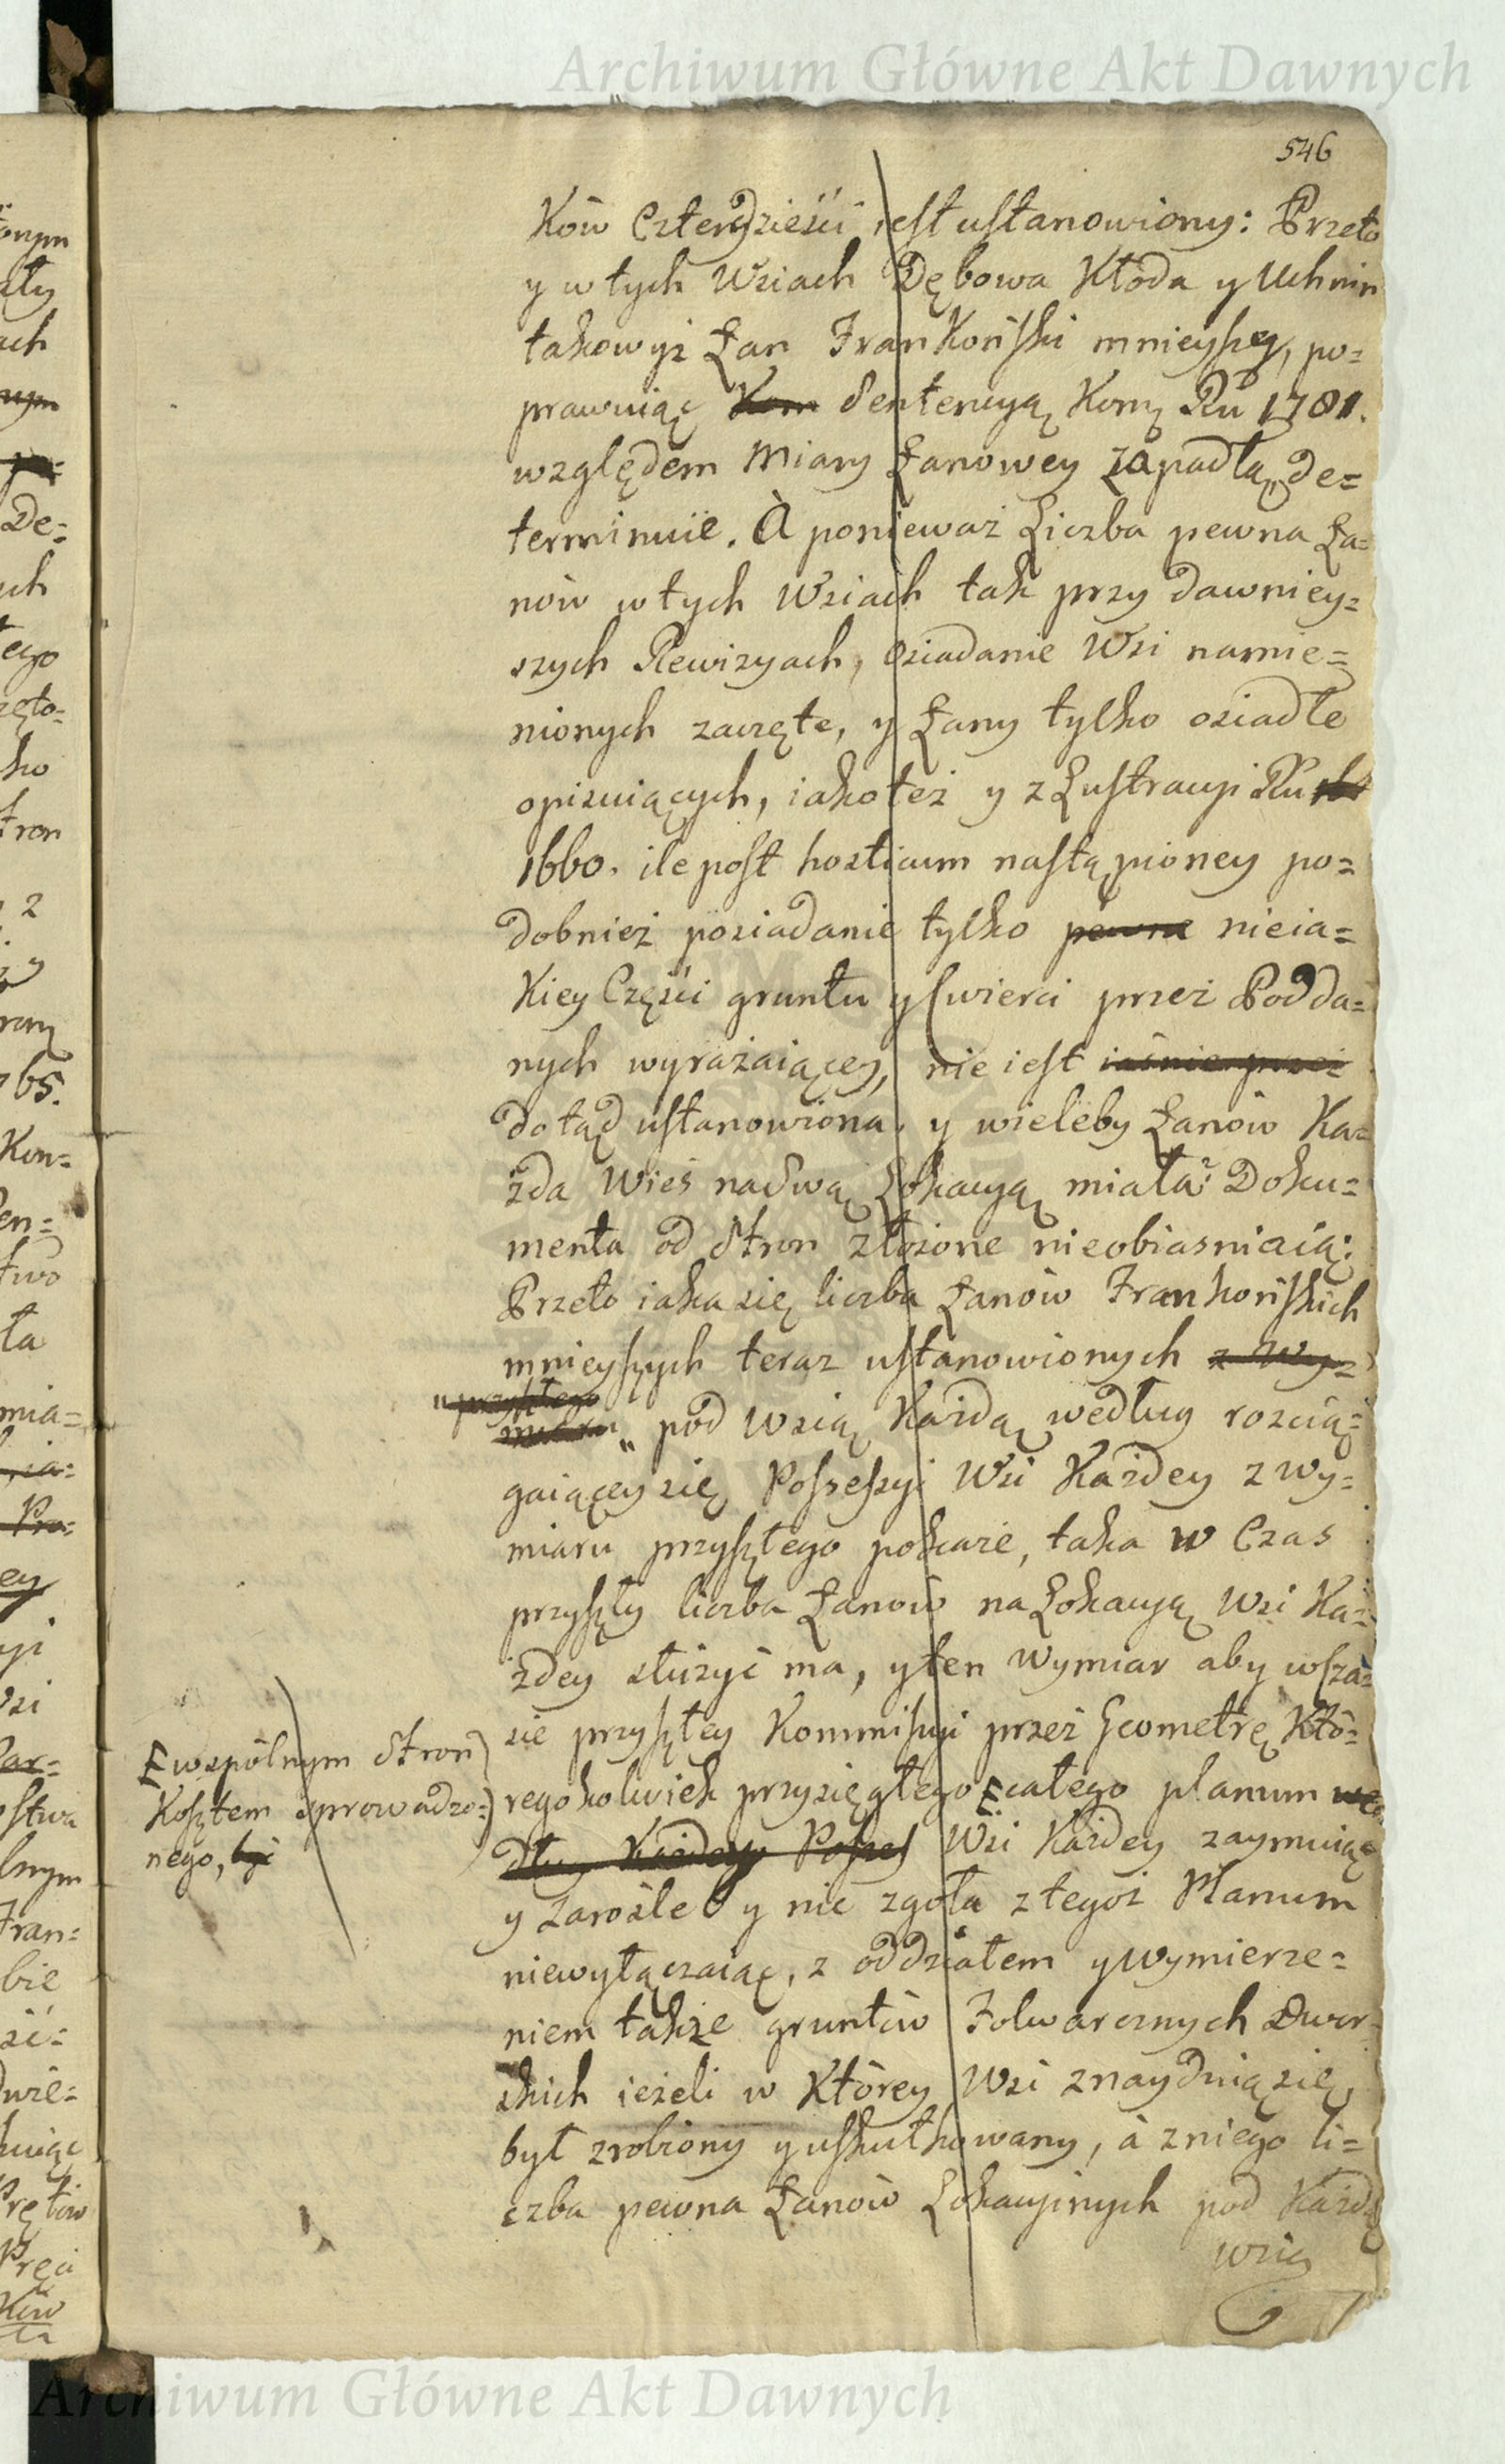 Archiwum Główne Akt Dawnych
546
Ków Czterdzieści iest ustanowiony: Przeto
y w tych Wsiach Dębowa Kłoda y Uhnin
takowyż Łan Frankoński mnieyszy, po=
prawuiąc Kom Sentencyą Kom Ru 1781.
względem Miary Łanowey zapadłą, de=
terminuie. A ponieważ Liczba pewna Ła=
nów w tych Wsiach tak przy dawniey=
szych Rewizyach, osiadanie Wsi namie=
nionych zaczęte, y Łany tylko osiadłe
opisuiących, iako też y z Lustracyi Ru
1660. ile post hosticum nastąpioney po=
dobnież posiadanie tylko pewne nieia=
Kiey Części gruntu y ćwierci przez Podda=
nych wyrażaiącey, nie iest iaśnie przez
dotąd ustanowiona, y wieleby Łanów Ka=
żda Wieś na swą Lokacyą miała? Doku=
menta od Stron złożone nieobiasniaią:
Przeto iaka się liczba Łanów Frankońskich
mnieyszych teraz ustanowionych z Wy=
" przyszłego
miaru " pod Wsią Każdą według rozcią=
gaiącey się Possessyi Wsi Każdey z wy=
miaru przyszłego pokaże, taka w Czas
przyszły liczba Łanów na Lokacyą Wsi Ka=
żdey służyć ma, y ten Wymiar aby w cza=
sie przyszłey Kommissyi przez Geometrę Któ=
regokolwiek przysięgłego E całego planum we=
dług Każdey Posses Wsi Każdey zaymuiąc
y Zarośle y nic zgoła z tegoż Planum
niewyłączaiąc, z oddziałem y wymierze=
niem także gruntów Folwarcznych Dwor=
skich ieżeli w Którey Wsi znayduią się,
był zrobiony y uskutkowany, à z niego li=
czba pewna Łanów Lokacyinych pod Każdą
wsią
E wspólnym Stron
Kosztem sprowadzo=
nego, być
Archiwum Główne Akt Dawnych